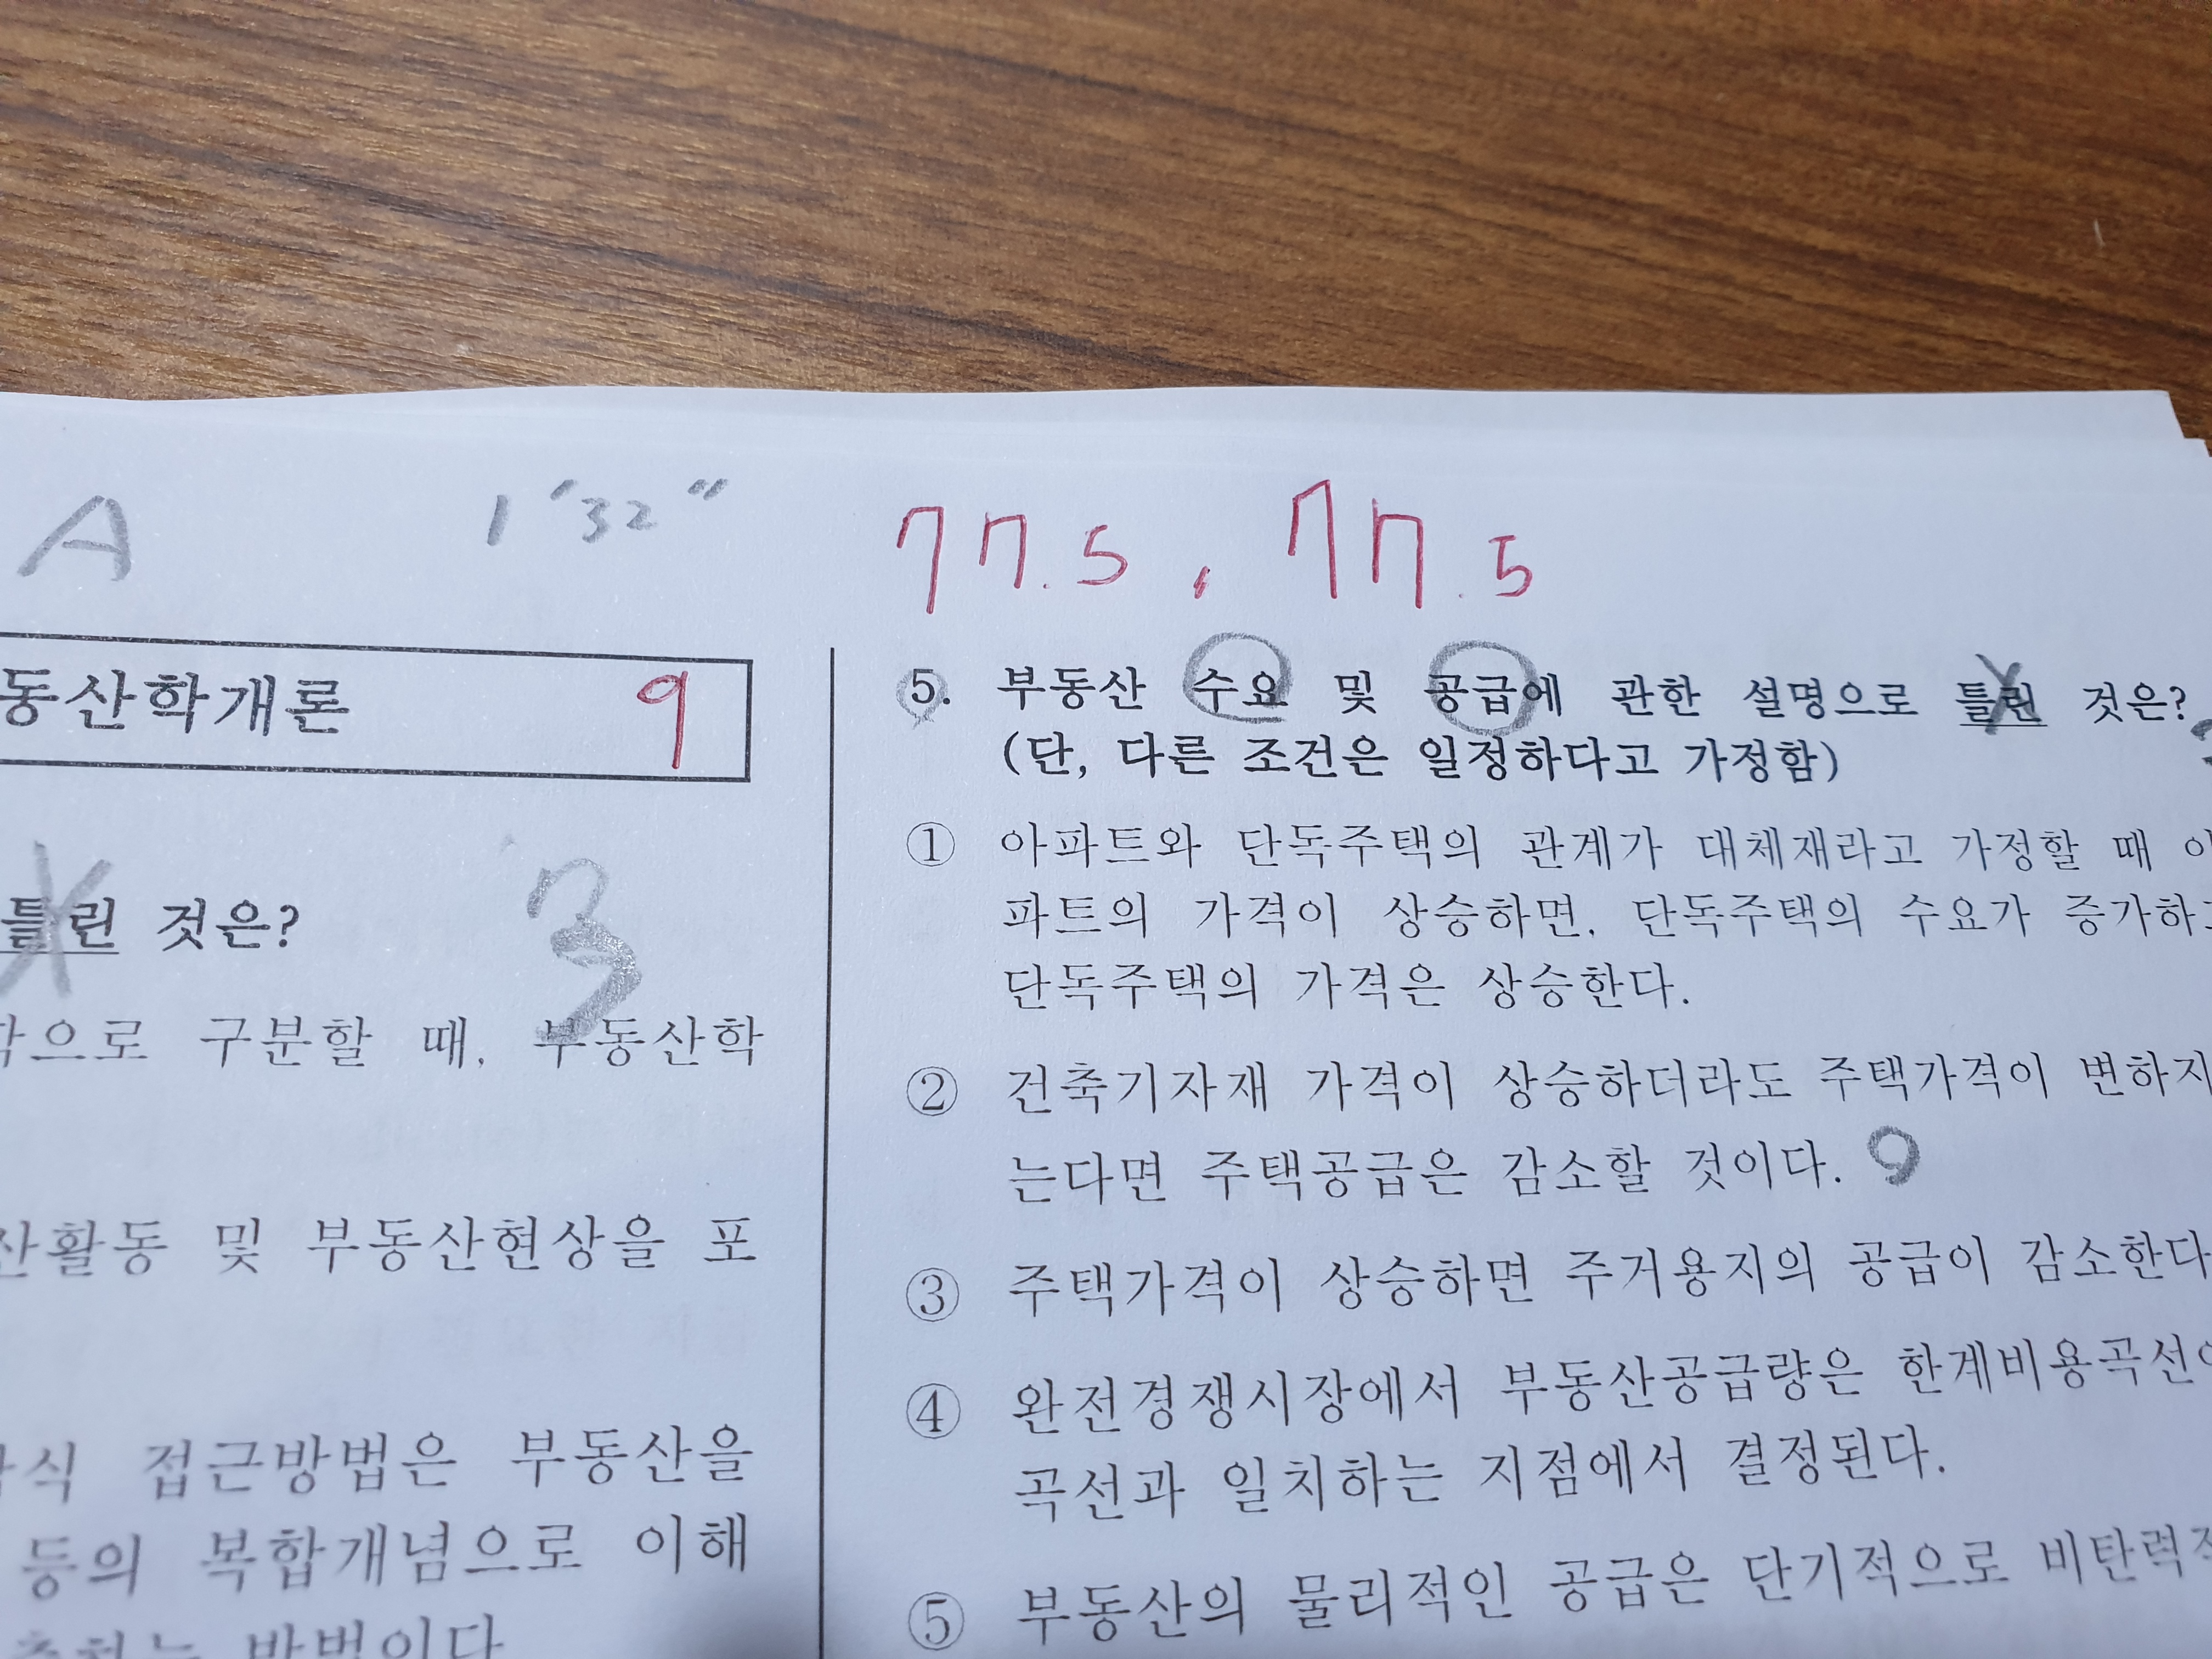 A 1′32″ 77.5, 77.5
동산학개론 9
틀린 것은? 3
으로 구분할 때, 부동산학
산활동 및 부동산현상을 포
식 접근방법은 부동산을
등의 복합개념으로 이해
방법이다
5. 부동산 수요 및 공급에 관한 설명으로 틀린 것은?
(단, 다른 조건은 일정하다고 가정함)
① 아파트와 단독주택의 관계가 대체재라고 가정할 때 아
파트의 가격이 상승하면, 단독주택의 수요가 증가하고
단독주택의 가격은 상승한다.
② 건축기자재 가격이 상승하더라도 주택가격이 변하지
는다면 주택공급은 감소할 것이다.
③ 주택가격이 상승하면 주거용지의 공급이 감소한다
④ 완전경쟁시장에서 부동산공급량은 한계비용곡선이
곡선과 일치하는 지점에서 결정된다.
⑤ 부동산의 물리적인 공급은 단기적으로 비탄력적